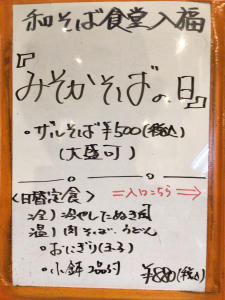 和そば食堂入福
『みそかそばの日』
・ザルそば ¥500(税込)
(大盛可)
〈日替定食〉 ＝入口こちら⇒
冷) 冷やしたぬき
温) 肉そば、うどん
・おにぎり
・小鉢2品付
¥880(税込)